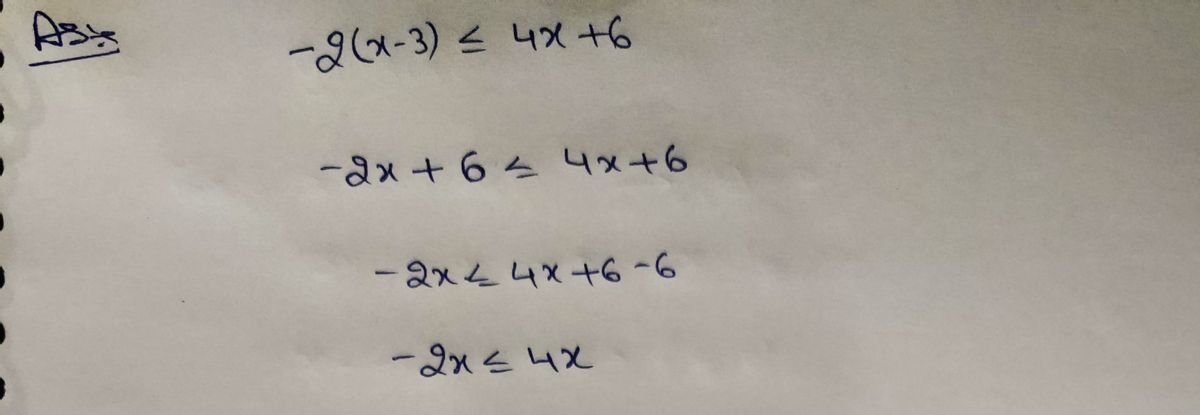 A3:-
-2(x-3) ≤ 4x +6
-2x + 6 ≤ 4x+6
-2x ≤ 4x +6 -6
-2x ≤ 4x